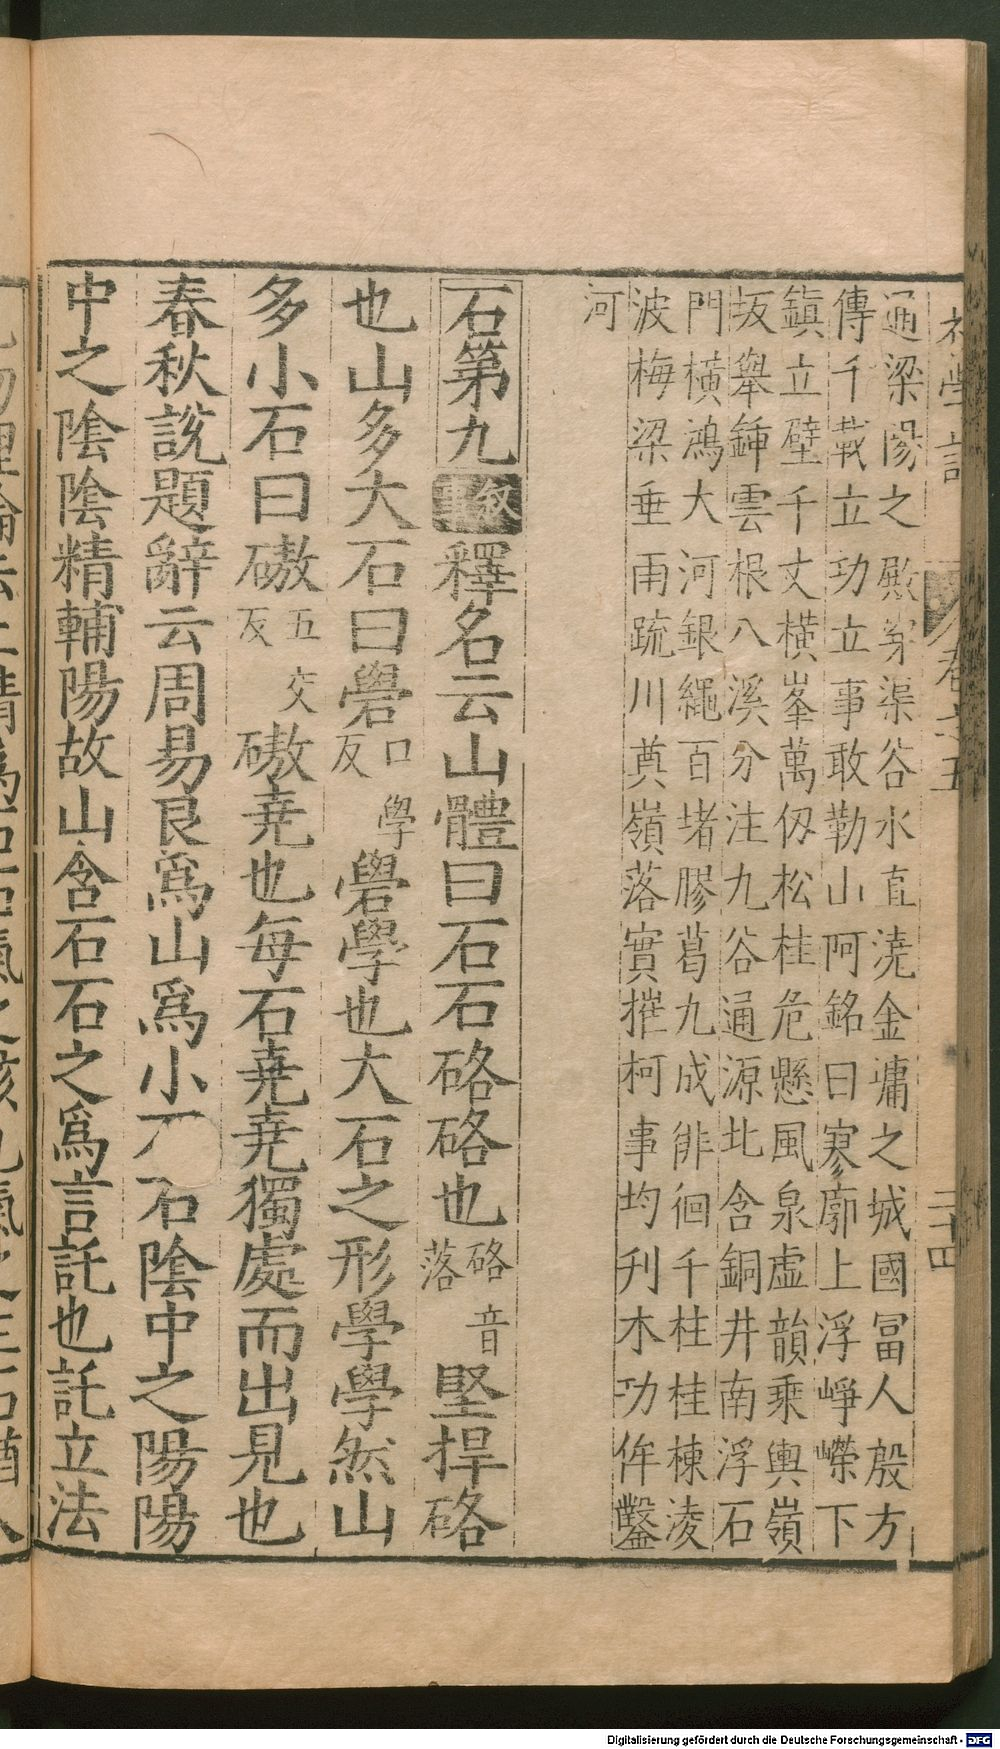 初學記
卷之五
二十四
通梁陽之殿穿渠谷水直澆金墉之城國冨人殷方
傳千載立功立事敢勒山阿銘曰寥廓上浮崢嶸下
鎮立壁千丈橫峯萬仭松桂危懸風泉虛韻乘輿嶺
坂舉鍤雲根八溪分注九谷通源北含銅井南浮石
門橫鴻大河銀繩百堵膠葛九成徘徊千柱桂棟淩
波梅梁垂雨疏川奠嶺落實摧柯事均刋木功侔鑿
河
石第九叙事釋名云山體曰石石硌硌也硌音落堅捍硌
也山多大石曰礐口學反礐學也大石之形學學然山
多小石曰磝五交反磝尭也每石尭尭獨處而出見也
春秋說題辭云周易艮爲山爲小石石陰中之陽陽
中之陰陰精輔陽故山含石石之爲言託也託立法
Digitalisierung gefördert durch die Deutsche Forschungsgemeinschaft - DFG